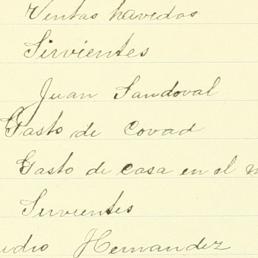 Ventas havidas
Sirvientes
Juan Sandoval
Gasto de Covad
Gasto de casa en el m
Sirvientes
udio Hernandez